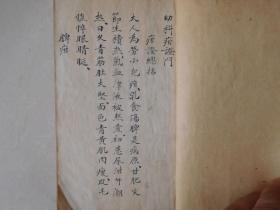 幼科疳證門
疳證總括
大人為勞小兒疳乳食傷脾是病原甘肥失
節生積熱氣血津液被熱煎初患尿泔午潮
熱日久青筋肚大堅面色青黃肌肉瘦皮毛
憔悴眼睛𥆧
脾疳